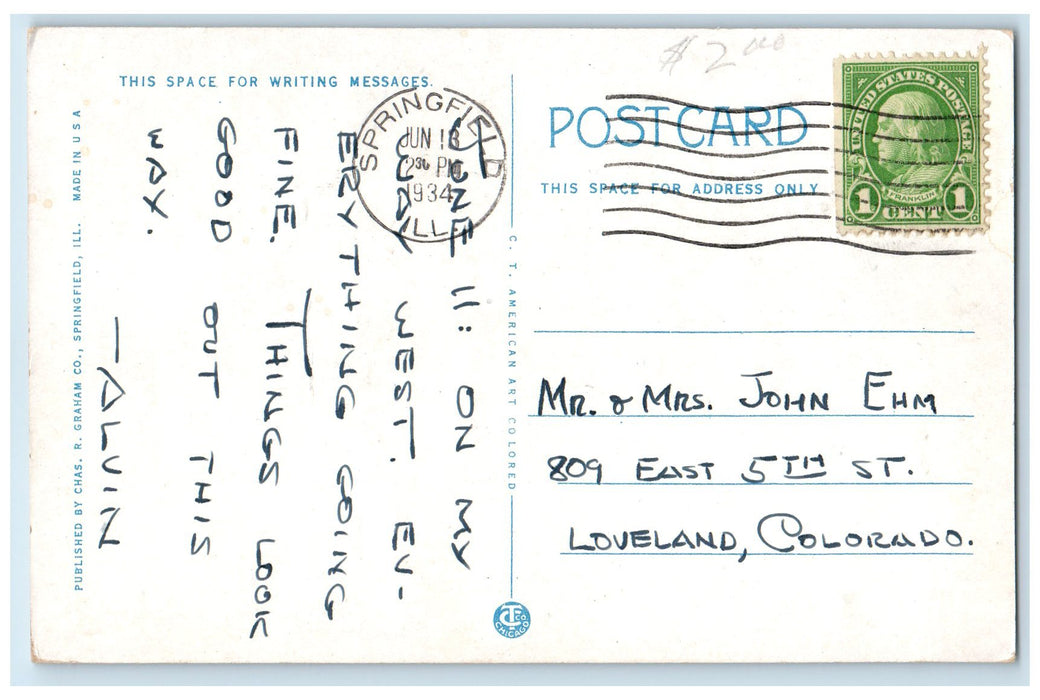 $2.00
THIS SPACE FOR WRITING MESSAGES.
POSTCARD
THIS SPACE FOR ADDRESS ONLY
UNITED STATES POSTAGE
FRANKLIN
1 CENT 1
SPRINGFIELD
JUN 13
230 PM
1934
ILL.
JUNE 11: ON MY
WAY WEST. EV-
ERYTHING GOING
FINE. THINGS LOOK
GOOD OUT THIS
WAY.
—ALVIN
MR. & MRS. JOHN EHM
809 EAST 5TH ST.
LOVELAND, COLORADO.
PUBLISHED BY CHAS. R. GRAHAM CO., SPRINGFIELD, ILL. MADE IN U S A
C. T. AMERICAN ART COLORED
CT CO.
CHICAGO